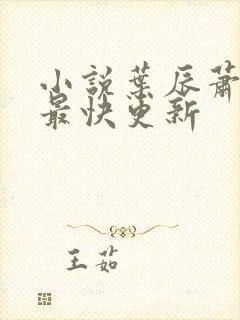 小説葉辰蕭
最快更新
王茹